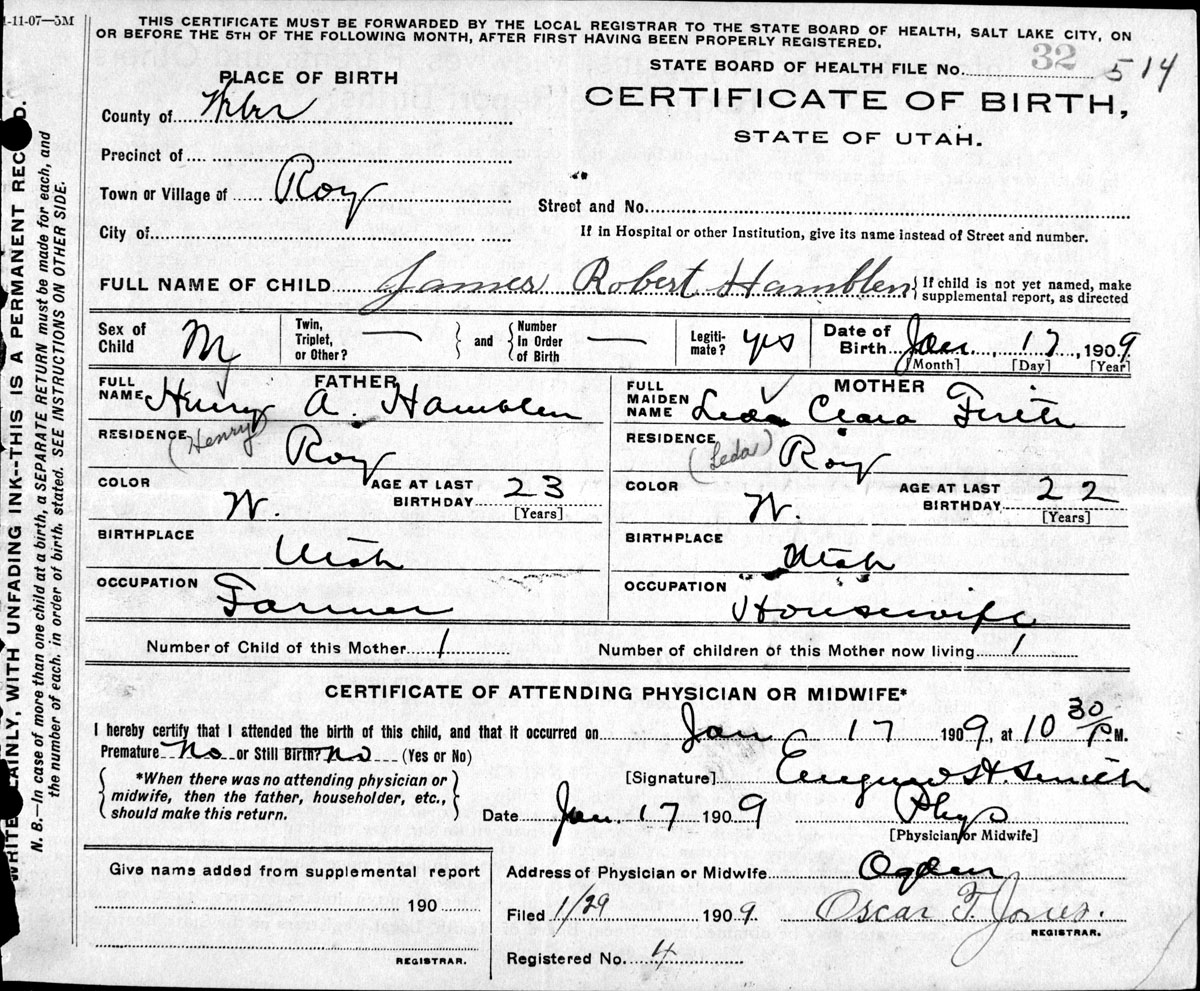 1-11-07—3M
THIS CERTIFICATE MUST BE FORWARDED BY THE LOCAL REGISTRAR TO THE STATE BOARD OF HEALTH, SALT LAKE CITY, ON
OR BEFORE THE 5TH OF THE FOLLOWING MONTH, AFTER FIRST HAVING BEEN PROPERLY REGISTERED.
PLACE OF BIRTH
STATE BOARD OF HEALTH FILE No. 32 514
County of Weber
CERTIFICATE OF BIRTH,
STATE OF UTAH.
Precinct of
Town or Village of Roy
Street and No.
City of
If in Hospital or other Institution, give its name instead of Street and number.
FULL NAME OF CHILD James Robert Hamblen {If child is not yet named, make supplemental report, as directed
Sex of Child M Twin, Triplet, or Other? — } and { Number In Order of Birth — Legiti-mate? yes Date of Birth Jan 17, 1909
[Month] [Day] [Year]
FATHER
MOTHER
FULL NAME Henry A. Hamblen
FULL MAIDEN NAME Leda Clara Firth
RESIDENCE (Henry) Roy
RESIDENCE (Leda) Roy
COLOR W. AGE AT LAST BIRTHDAY 23 [Years]
COLOR W. AGE AT LAST BIRTHDAY 22 [Years]
BIRTHPLACE Utah
BIRTHPLACE Utah
OCCUPATION Farmer
OCCUPATION Housewife
Number of Child of this Mother 1 Number of children of this Mother now living 1
CERTIFICATE OF ATTENDING PHYSICIAN OR MIDWIFE*
I hereby certify that I attended the birth of this child, and that it occurred on Jan 17 1909, at 10 30 P M.
Premature No or Still Birth? No (Yes or No)
{*When there was no attending physician or midwife, then the father, householder, etc., should make this return.}
[Signature] H Smith
Date Jan. 17 1909 Phys
[Physician or Midwife]
Give name added from supplemental report
190
REGISTRAR.
Address of Physician or Midwife Ogden
Filed 1/29 1909 Oscar F. Jones.
REGISTRAR.
Registered No. 4
WRITE PLAINLY, WITH UNFADING INK--THIS IS A PERMANENT RECORD.
N. B.—In case of more than one child at a birth, a SEPARATE RETURN must be made for each, and
the number of each, in order of birth, stated. SEE INSTRUCTIONS ON OTHER SIDE.